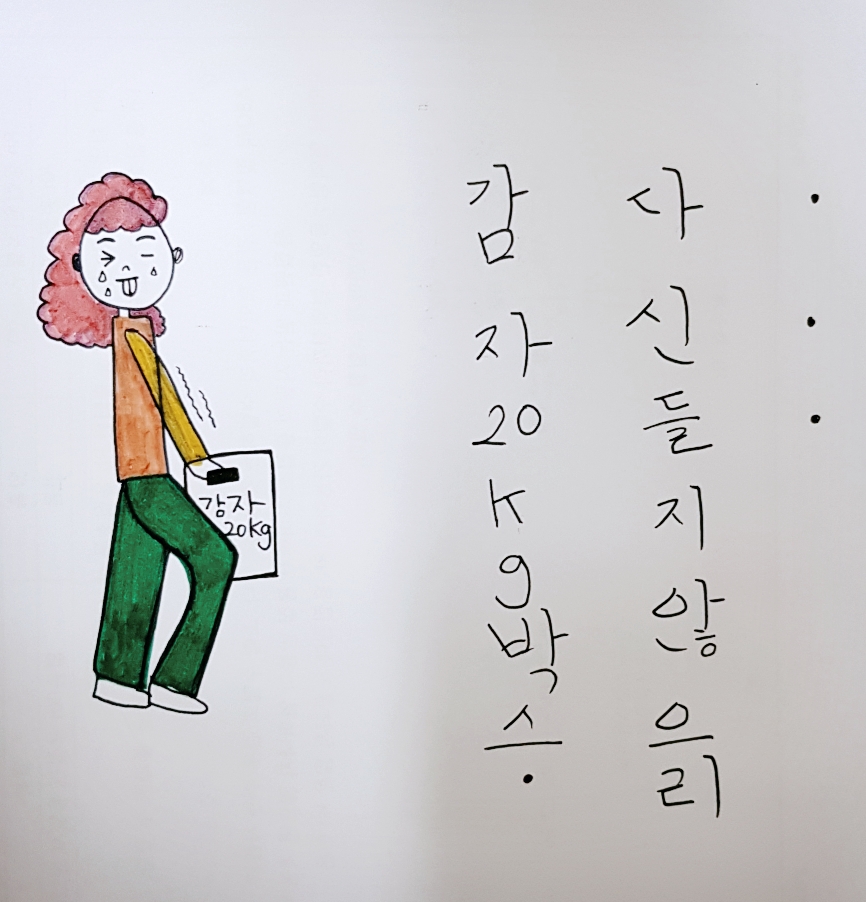 ...
다신들지않으리
감자20kg박스.
감자
20kg